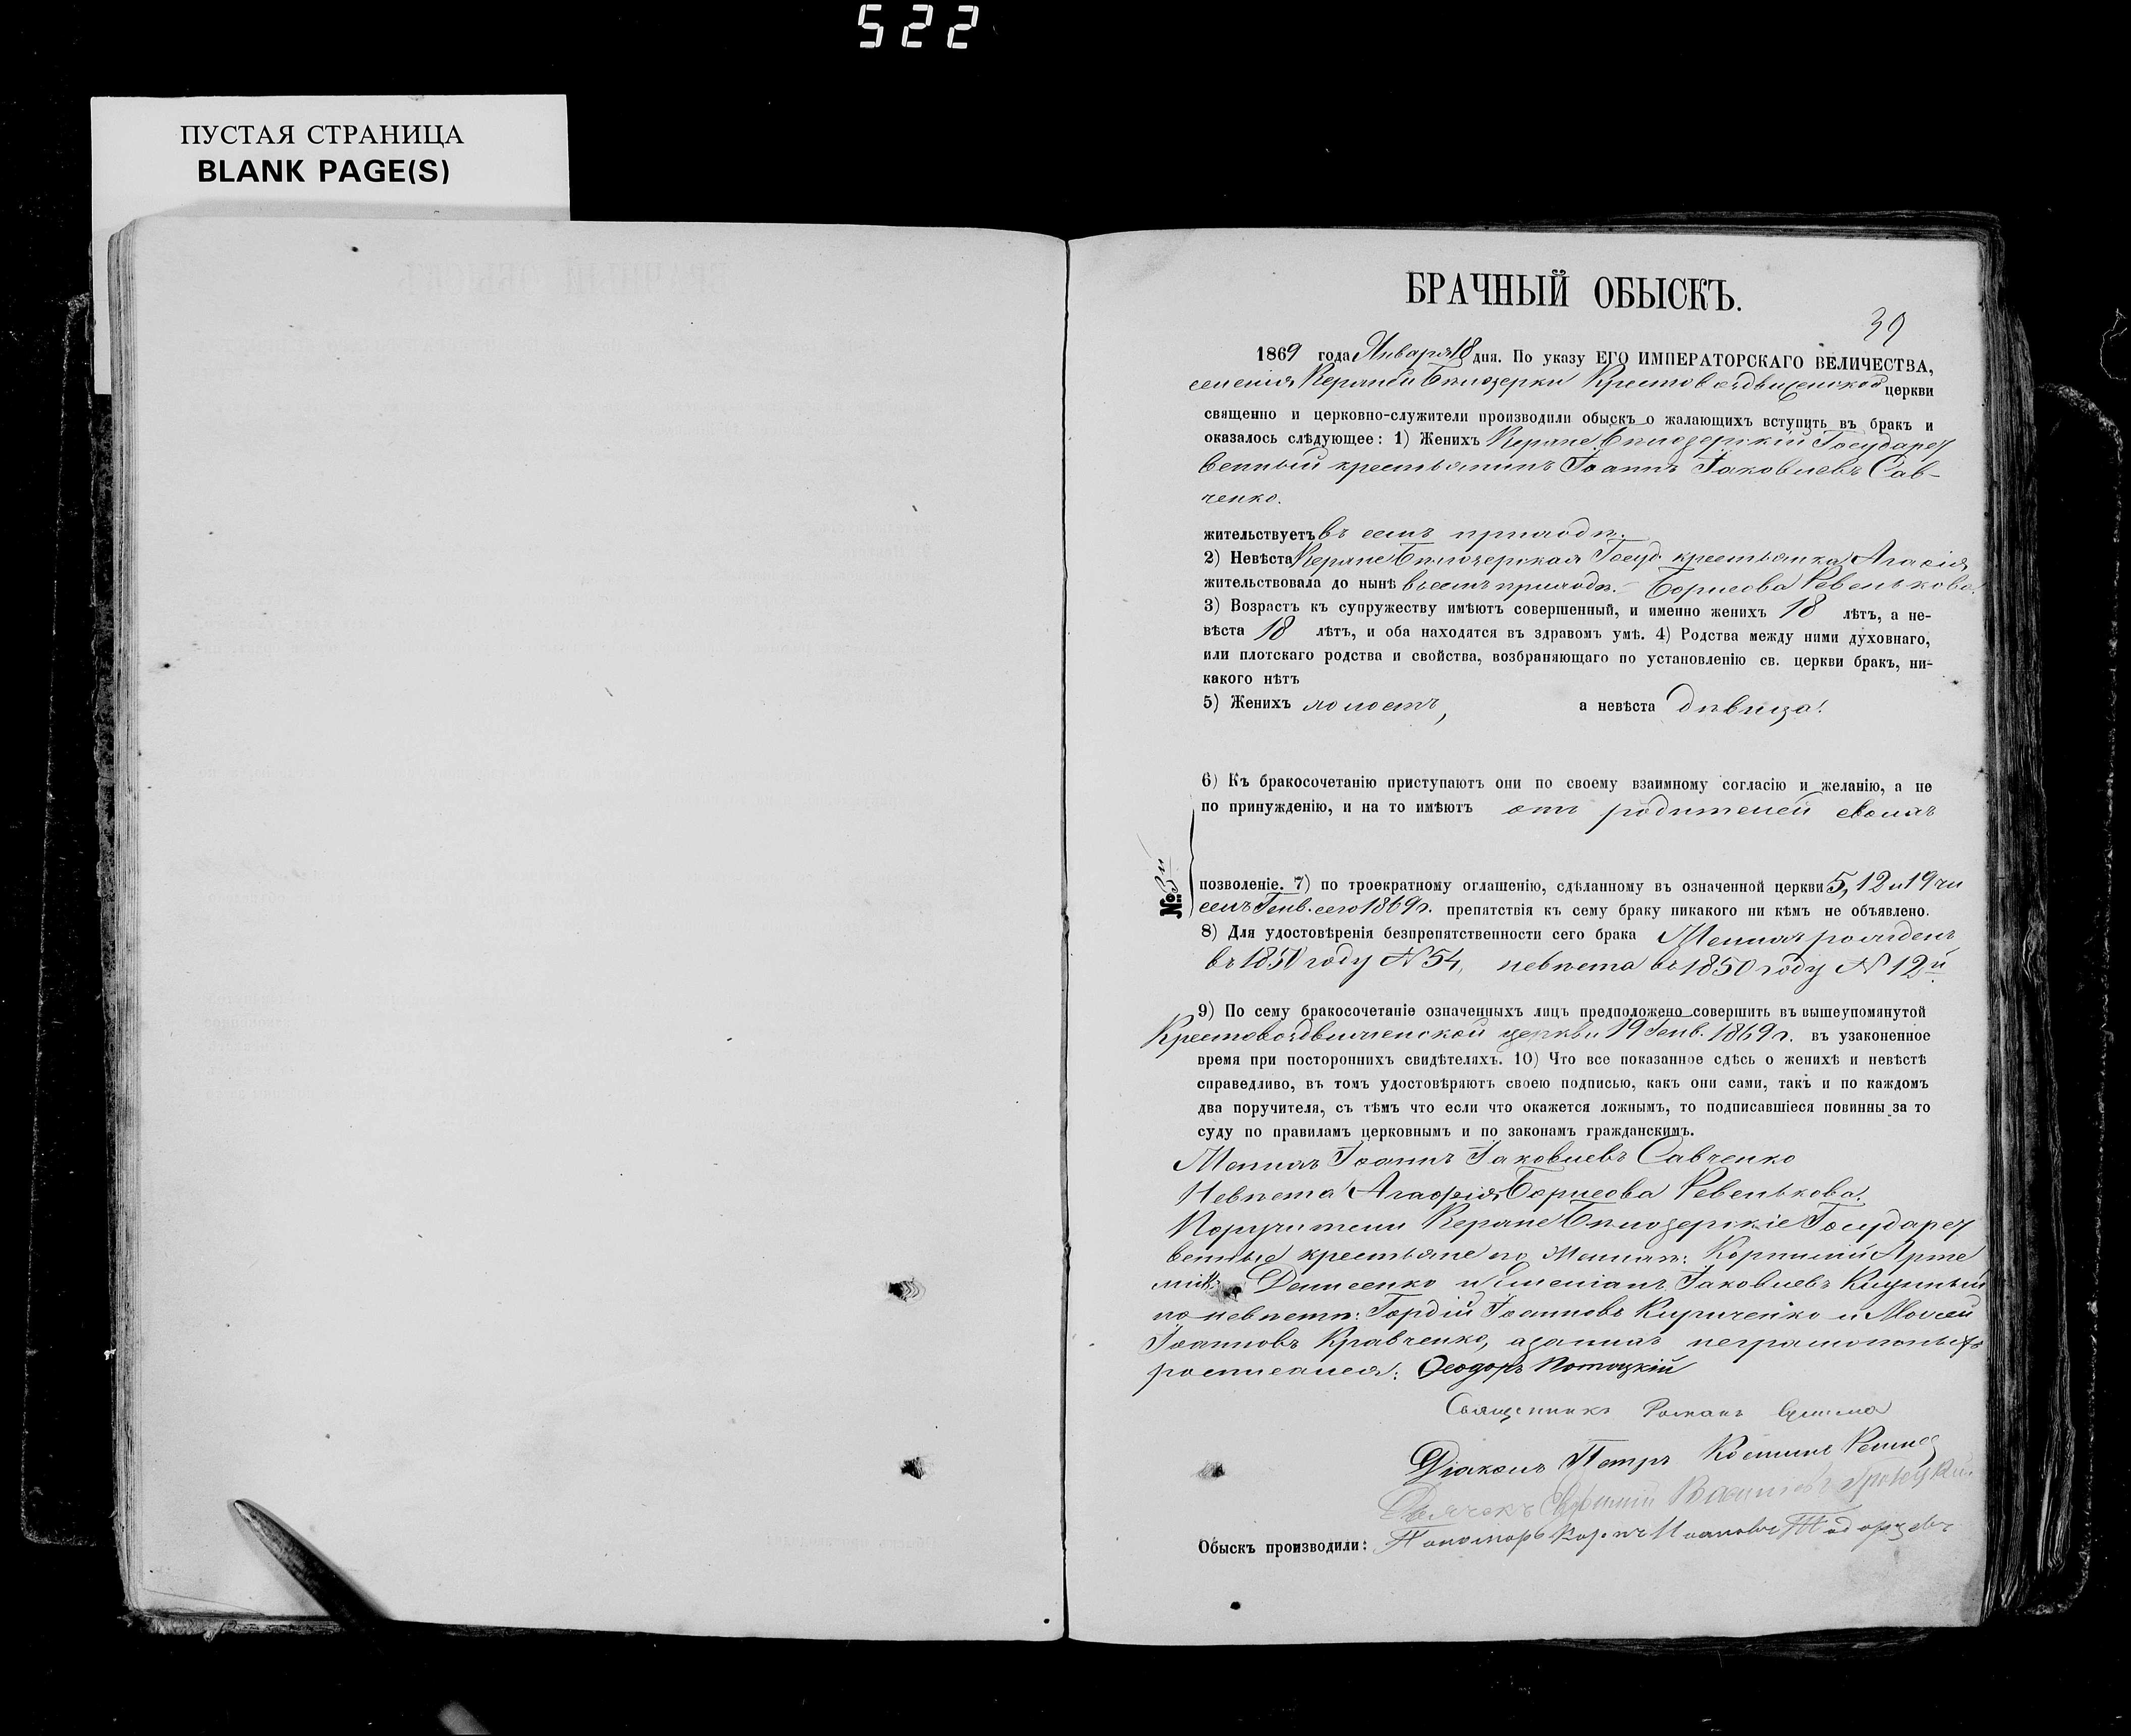 522
ПУСТАЯ СТРАНИЦА
BLANK PAGE(S)
БРАЧНЫЙ ОБЫСКЪ.
39
1869 года Января 18 дня. По указу ЕГО ИМПЕРАТОРСКАГО ВЕЛИЧЕСТВА,
селенія Верхней Бѣлозерки Крестовоздвиженской церкви
священно и церковно-служители производили обыскъ о жалающихъ вступить въ бракъ и
оказалось слѣдующее: 1) Женихъ Бѣлозерскій Государст
венный крестьянинъ Іоаннъ Іаковлевъ Сав-
ченко.
жительствуетъ въ семъ приходѣ.
2) Невѣста Бѣлозерская Госуд. крестьянка Агафія
жительствовала до нынѣ въ семъ приходѣ. Борисова Ревенькова.
3) Возрастъ къ супружеству имѣютъ совершенный, и именно женихъ 18 лѣтъ, а не-
вѣста 18 лѣтъ, и оба находятся въ здравомъ умѣ. 4) Родства между ними духовнаго,
или плотскаго родства и свойства, возбраняющаго по установленію св. церкви бракъ, ни-
какого нѣтъ
5) Женихъ холостъ, а невѣста дѣвица.
6) Къ бракосочетанію приступаютъ они по своему взаимному согласію и желанію, а не
по принужденію, и на то имѣютъ отъ родителей своихъ
№ 3й
позволеніе. 7) по троекратному оглашенію, сдѣланному въ означенной церкви 5, 12 и 19 чи
селъ Генв. сего 1869 г. препятствія къ сему браку никакого ни кѣмъ не объявлено.
8) Для удостовѣренія безпрепятственности сего брака Женихъ рожденъ
въ 1850 году N 54, невѣста въ 1850 году N 12й
9) По сему бракосочетаніе означенныхъ лицъ предположено совершить въ вышеупомянутой
Крестовоздвиженской церкви 19 Генв. 1869 г. въ узаконенное
время при постороннихъ свидѣтеляхъ. 10) Что все показанное сдѣсь о женихѣ и невѣстѣ
справедливо, въ томъ удостовѣряютъ своею подписью, какъ они сами, такъ и по каждомъ
два поручителя, съ тѣмъ что если что окажется ложнымъ, то подписавшіеся повинны за то
суду по правиламъ церковнымъ и по законамъ гражданскимъ.
Женихъ Іоаннъ Іаковлевъ Савченко
Невѣста Агафія Борисова Ревенькова.
Поручители Бѣлозерскіе Государст
венные крестьяне по Женихѣ: Корнилій Арте
Денисенко и Емеліанъ Іаковлевъ
по невѣстѣ: Гордій Іоанновъ Кириченко и Моисей
Іоанновъ Кравченко, а за нихъ неграмотныхъ
росписался: Ѳеодоръ Потоцкій
Священникъ Романъ
Діаконъ Петръ
Дьячекъ
Обыскъ производили: Пономарь